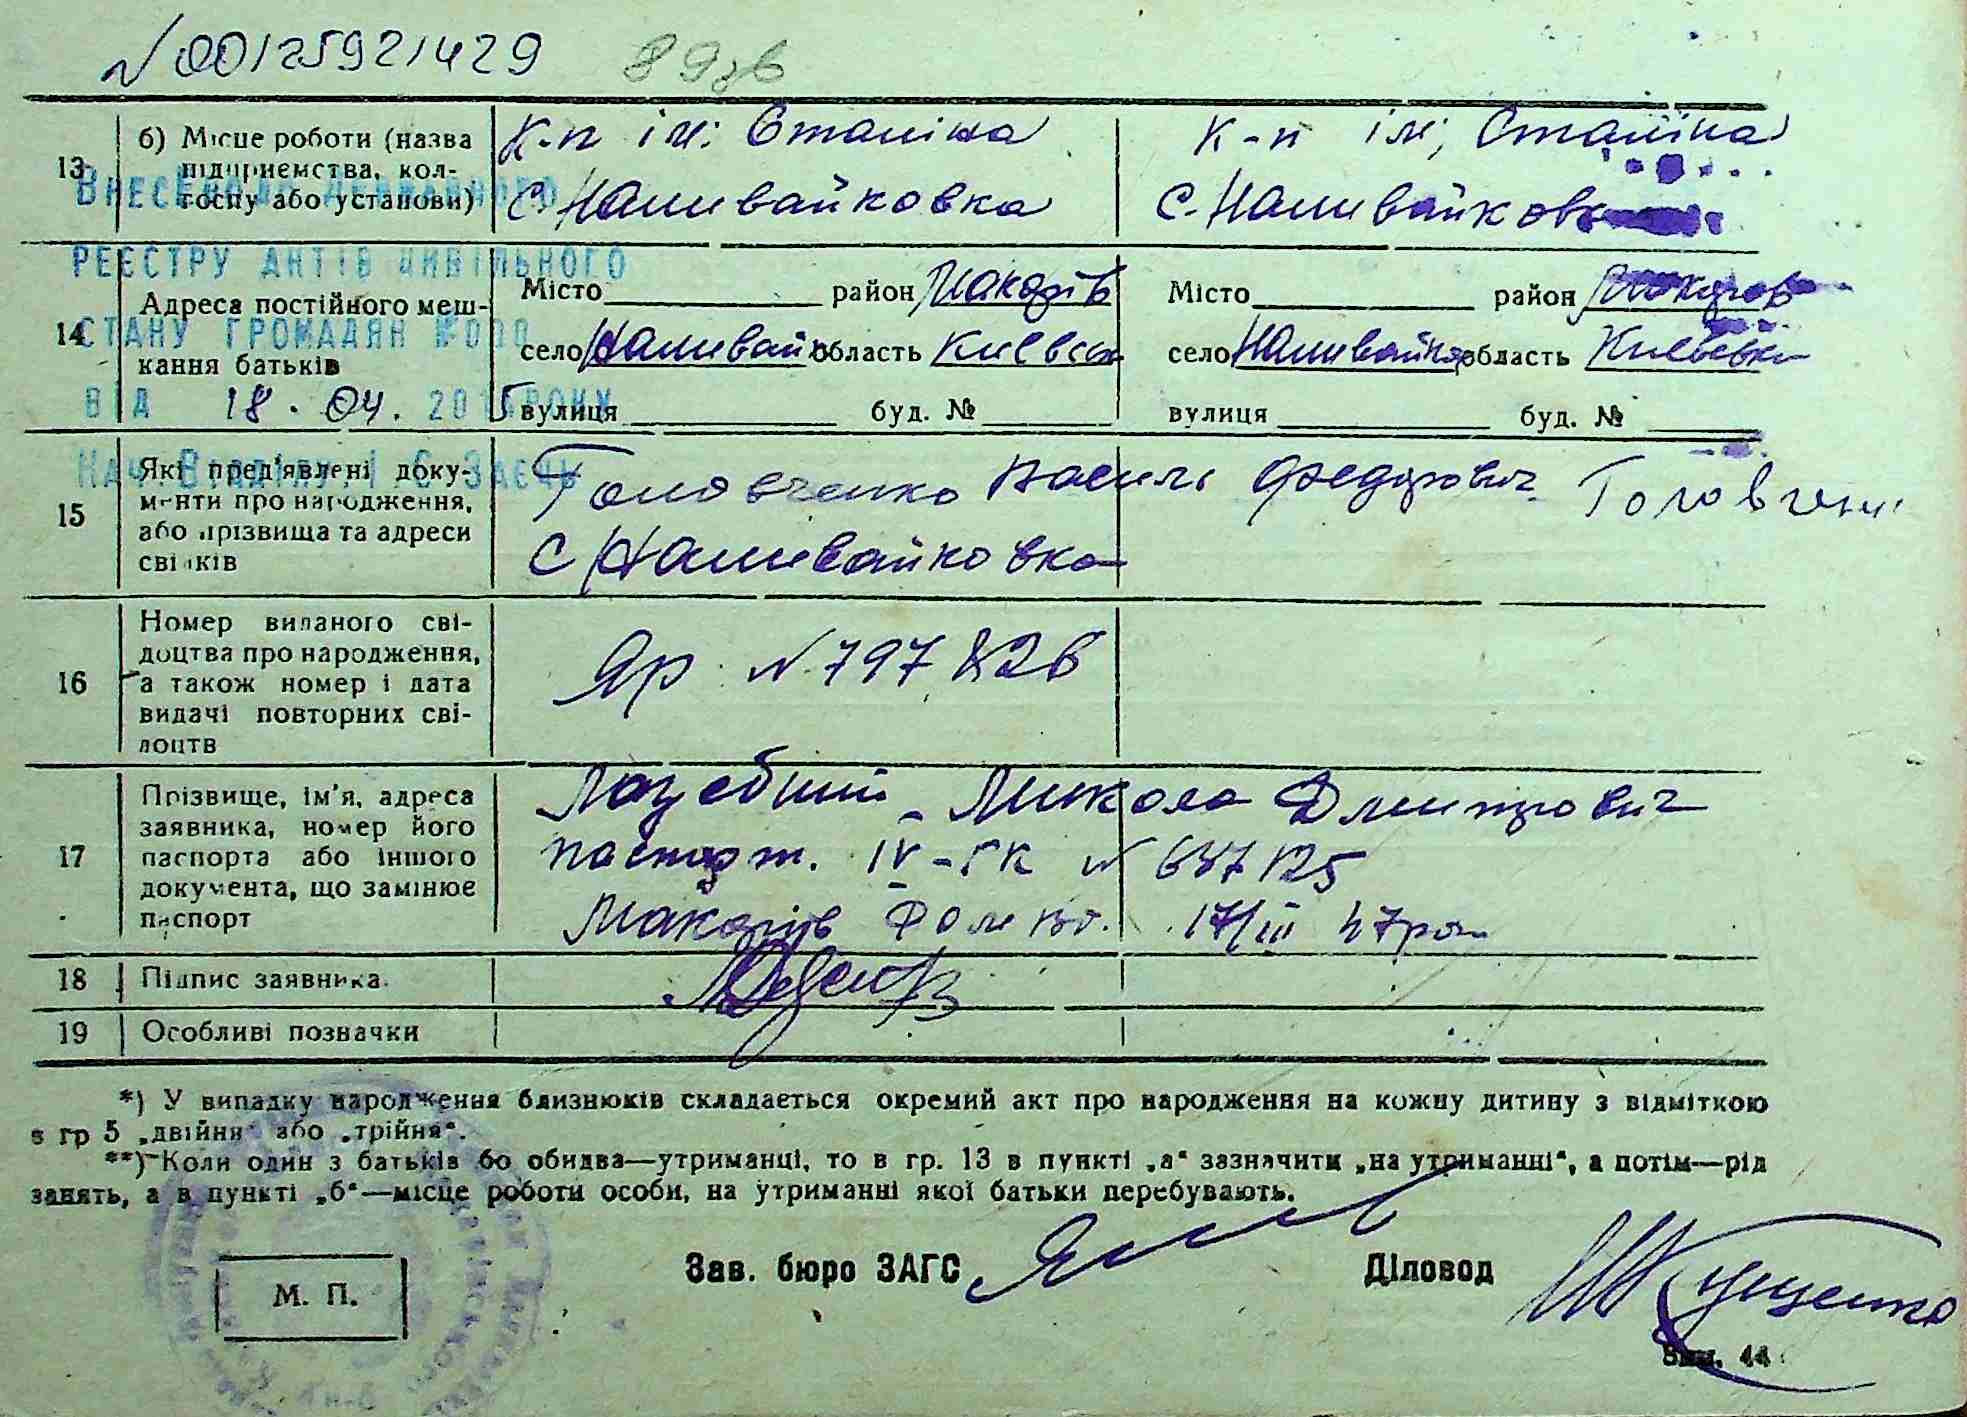 N 00125921429 89зв
13 б) Місце роботи (назва підприємства, колгоспу або установи)
К-п ім: Сталіна
С. Наливайковка
К-п ім; Сталіна
С. Наливайковка
ВНЕСЕНО ДО ДЕРЖАВНОГО
РЕЄСТРУ АКТІВ ЦИВІЛЬНОГО
СТАНУ ГРОМАДЯН
ВІД 18. 04. 2015 РОКУ
НАЧ. ВІДДІЛУ І. Є. ЗАЄЦЬ
14 Адреса постійного меш-
кання батьків
Місто район Макарів
село Наливайк область Київськ
вулиця буд. №
Місто район Макарів
село Наливайк область Київськ
вулиця буд. №
15 Які пред'явлені доку-
менти про народження,
або прізвища та адреси
свідків
Головченко Василь Федорович Головченко
С Наливайковка
16 Номер виданого сві-
доцтва про народження,
а також номер і дата
видачі повторних сві-
доцтв
Яр N 797826
17 Прізвище, ім'я, адреса
заявника, номер його
паспорта або іншого
документа, що замінює
паспорт
Микола Дмитрович
паспорт. IV-ГК N 687125
Макарів 17/III 47рок
18 Підпис заявника
19 Особливі позначки
*) У випадку народження близнюків складається окремий акт про народження на кожну дитину з відміткою
в гр 5 „двійня" або „трійня".
**) Коли один з батьків бо обидва—утриманці, то в гр. 13 в пункті „а" зазначити „на утриманні", а потім—рід
занять, а в пункті „б"—місце роботи особи, на утриманні якої батьки перебувають.
М. П.
Зав. бюро ЗАГС
Діловод
Зам. 44